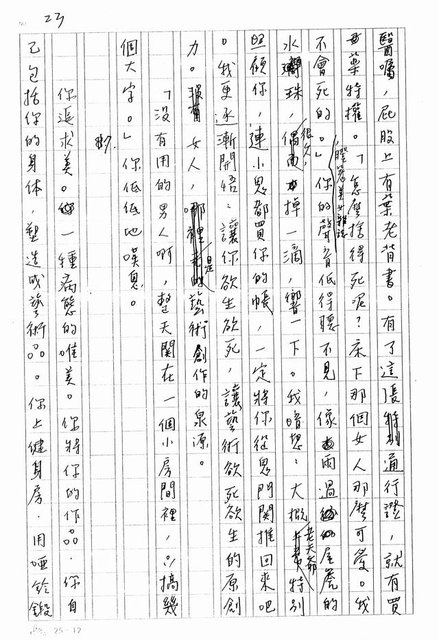 23
醫囑，屁股上有葉老背書。有了這張特別通行證，就有買
藥特權。「怎麼捨得死呢？床下那個女人那麼可愛。我
不會死的。」你的聲音低得聽不見，像雨過屋簷的
水珠，很久，偶而掉一滴，響一下。我暗想：大概老天爺特別
照顧你，連小鬼都買你的帳，一定將你從鬼門關推回來吧
。我更逐漸開悟：讓你欲生欲死，讓藝術欲死欲生的原創
力。女人，是藝術創作的泉源。
「沒有用的男人啊，整天關在一個小房間裡，只搞幾
個大字。」你低低地嘆息。
你追求美。一種病態的唯美。你將你的作品，你自
己包括你的身体，塑造成藝術品。你上健身房，用啞鈴鍛
25-17